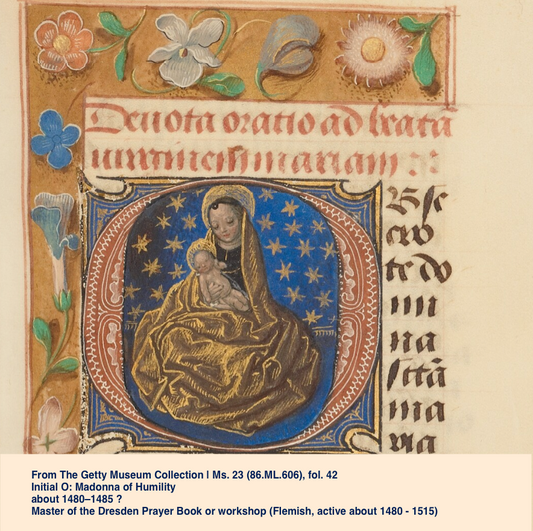 Deuota oratio ad beatā
uirginem mariam
Bse
cro
te do
mi
na
sctā
ma
ria
From The Getty Museum Collection | Ms. 23 (86.ML.606), fol. 42
Initial O: Madonna of Humility
about 1480–1485 ?
Master of the Dresden Prayer Book or workshop (Flemish, active about 1480 - 1515)